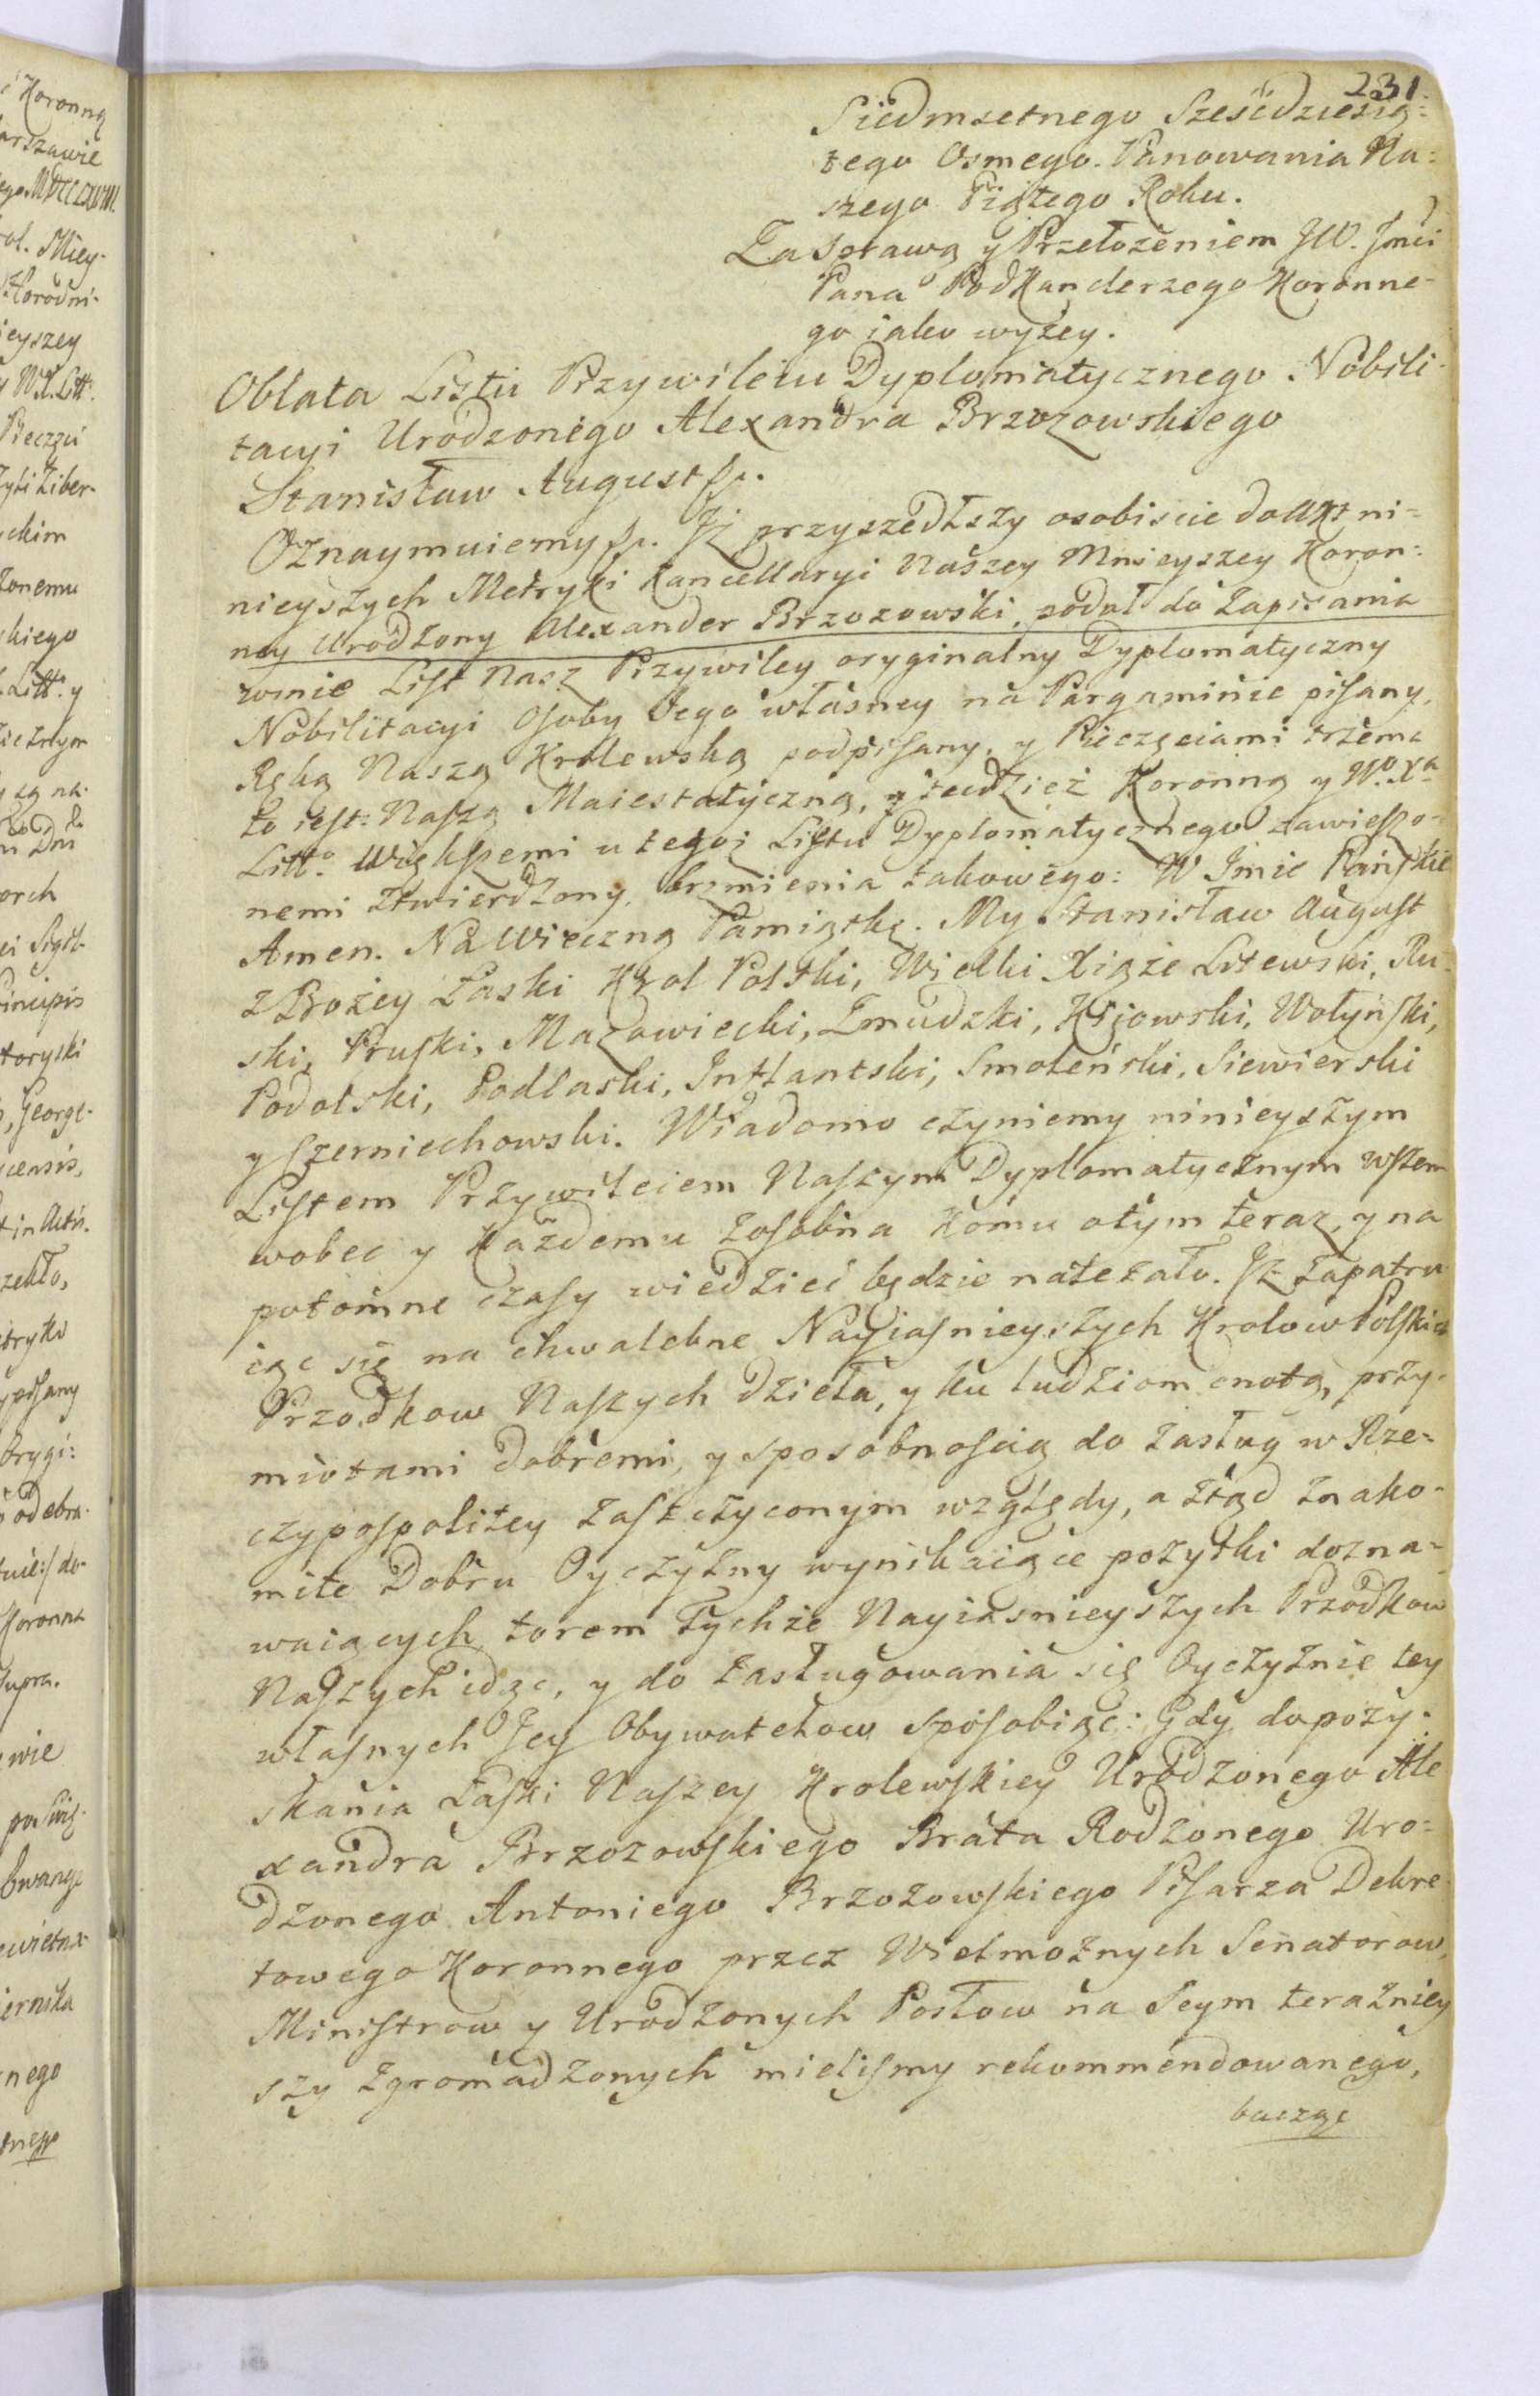 231.
Siedmsetnego Sześćdziesią=
tego Osmego. Panowania Na=
szego Piątego Roku.
Za Sprawą y Przełożeniem JW. Jmći
Pana PodKanclerzego Koronne-
go iako wyżey.
Oblata Listu Przywileiu Dyplomatycznego Nobili-
tacyi Urodzonego Alexandra Brzozowskiego
Stanisław August
Oznaymuiemy Jż przyszedłszy osobiscie do Akt ni=
nieyszych Metryki Kancellaryi Naszey Mnieyszey Koron=
ney Urodzony Alexander Brzozowski, podał do Zapisania
w nie List Nasz Przywiley oryginalny Dyplomatyczny
Nobilitacyi Osoby Jego własney na Pargaminie pisany,
Ręką Naszą Krolewską podpisany, y Pieczęciami trzema
to iest: Naszą Maiestatyczną, y tedzież Koronną y W. X.
Litt. Większemi u tegoż Listu Dyplomatycznego zawieszo-
nemi ztwierdzony, brzmienia takowego: W Jmie Pańskie
Amen. Na Wieczną Pamiątkę. My Stanisław August
z Bożey Łaski Krol Polski, Wielki Xiąże Litewski, Ru-
ski, Pruski, Mazowiecki, Zmudzki, Kijowski, Wołyński,
Podolski, Podlaski, Inflantski, Smoleński, Siewierski
y Czerniechowski. Wiadomo czyniemy ninieyszym
Listem Przywileiem Naszym Dyplomatycznym wszem
wobec y Każdemu zosobna Komu otym teraz, y na
potomne czasy wiedzieć będzie należało. Jż zapatru
iąc się na chwalebne Nayiasnieyszych Krolow Polskich
Przodkow Naszych dzieła, y ku ludziom cnotą, przy-
miotami dobremi, y sposobnoscią do zasług w Rze=
czypospolitey zaszczyconym względy, a ztąd znako-
mite Dobru Oyczyzny wynikaiące pożytki dozna=
waiących, torem Tychże Nayiasnieyszych Przodkow
Naszych idąc, y do zasługowania się Oyczyznie tey
własnych Jey Obywatelow sposobiąc: Gdy dopozy-
skania Łaski Naszey Krolewskiey Urodzonego Ale
xandra Brzozowskiego Brata Rodzonego Uro=
dzonego Antoniego Brzozowskiego Pisarza Dekre
towego Koronnego przez Wielmożnych Senatorow,
Ministrow y Urodzonych Posłow na Seym teraźniey
szy zgromadzonych mielismy rekommendowanego,
bacząc